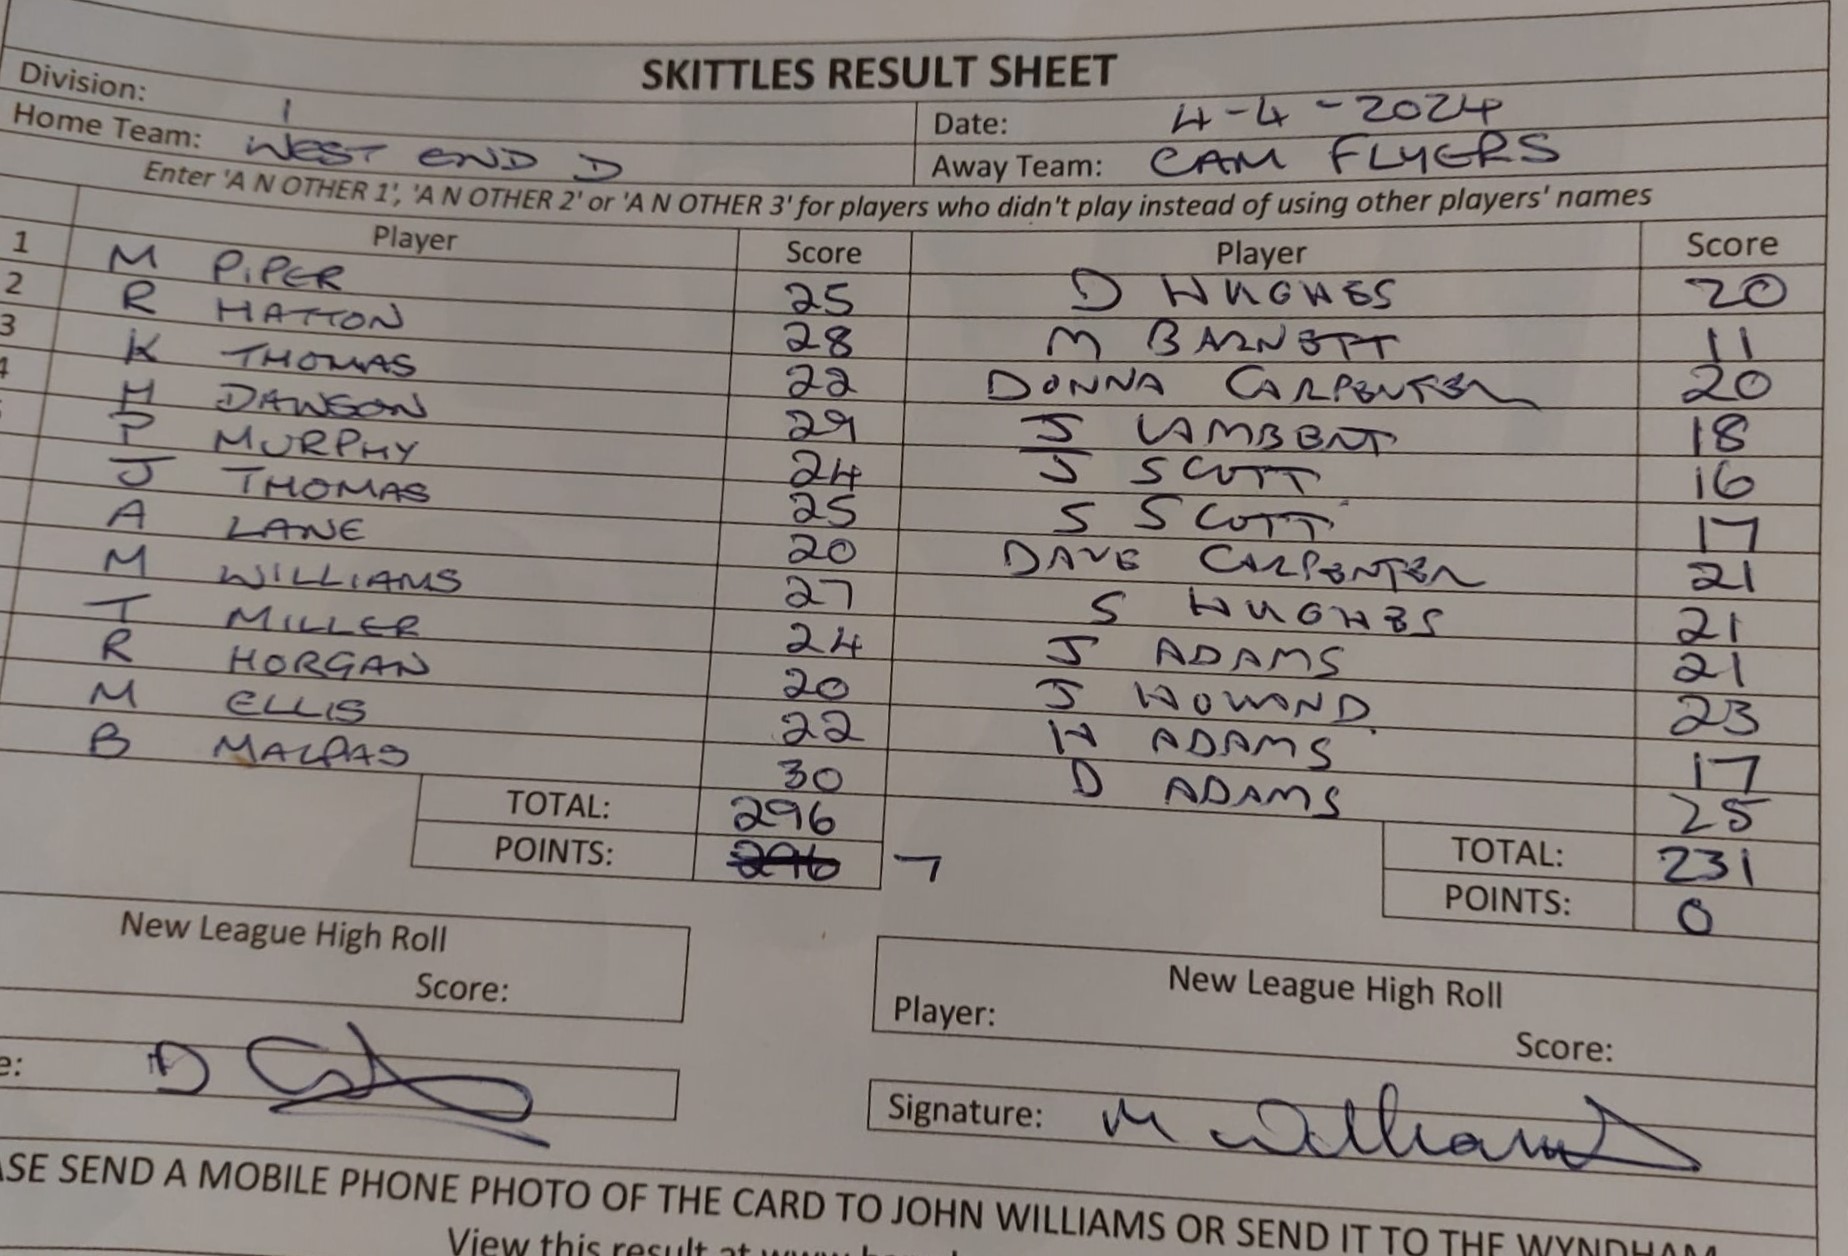 SKITTLES RESULT SHEET
Division: 1 Date: 4-4-2024
Home Team: WEST END D Away Team: CAM FLYERS
Enter 'A N OTHER 1', 'A N OTHER 2' or 'A N OTHER 3' for players who didn't play instead of using other players' names
Player Score Player Score
1 M PIPER 25 D HUGHES 20
2 R HATTON 28 M BARNETT 11
3 K THOMAS 22 DONNA CARPENTER 20
4 H DAWSON 29 J LAMBERT 18
P MURPHY 24 J SCOTT 16
J THOMAS 25 S SCOTT 17
A LANE 20 DAVE CARPENTER 21
M WILLIAMS 27 S HUGHES 21
T MILLER 24 J ADAMS 21
R HORGAN 20 J HOWAND 23
M ELLIS 22 H ADAMS 17
B MALPAS 30 D ADAMS 25
TOTAL: 296 TOTAL: 231
POINTS: 296 7 POINTS: 0
New League High Roll New League High Roll
Score: Player: Score:
e: D Signature: M Williams
ASE SEND A MOBILE PHONE PHOTO OF THE CARD TO JOHN WILLIAMS OR SEND IT TO THE WYNDHAM
View this result at